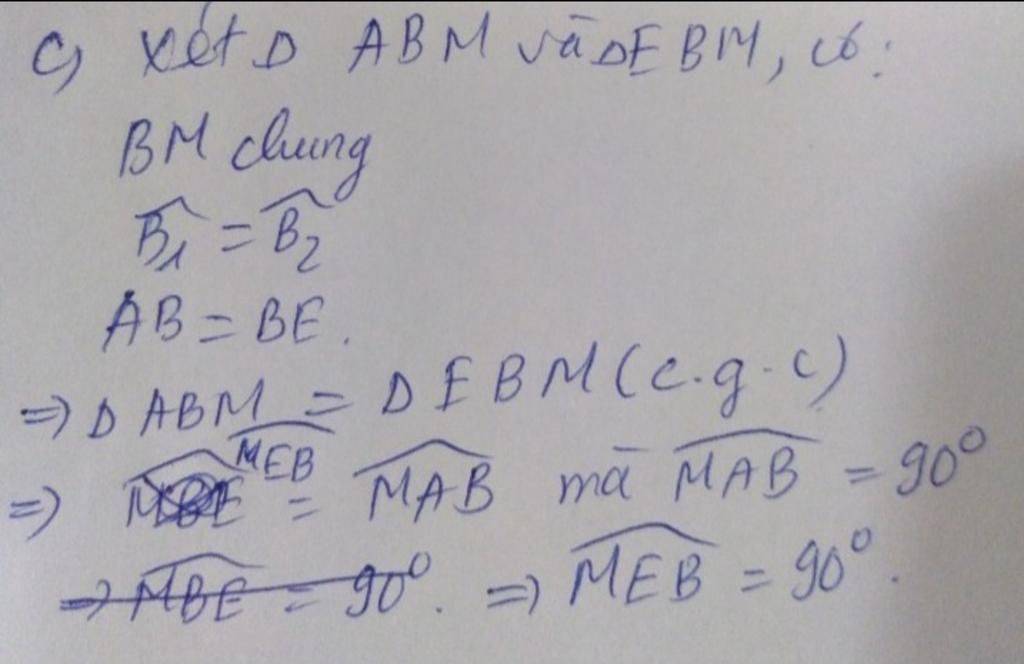 c, Xét Δ ABM và Δ EBM, có:
BM chung
B̂₁ = B̂₂
AB = BE.
=> Δ ABM = Δ EBM (c.g.c)
=> MEB = MAB mà MAB = 90⁰
=> MBE = 90⁰. => MEB = 90⁰.